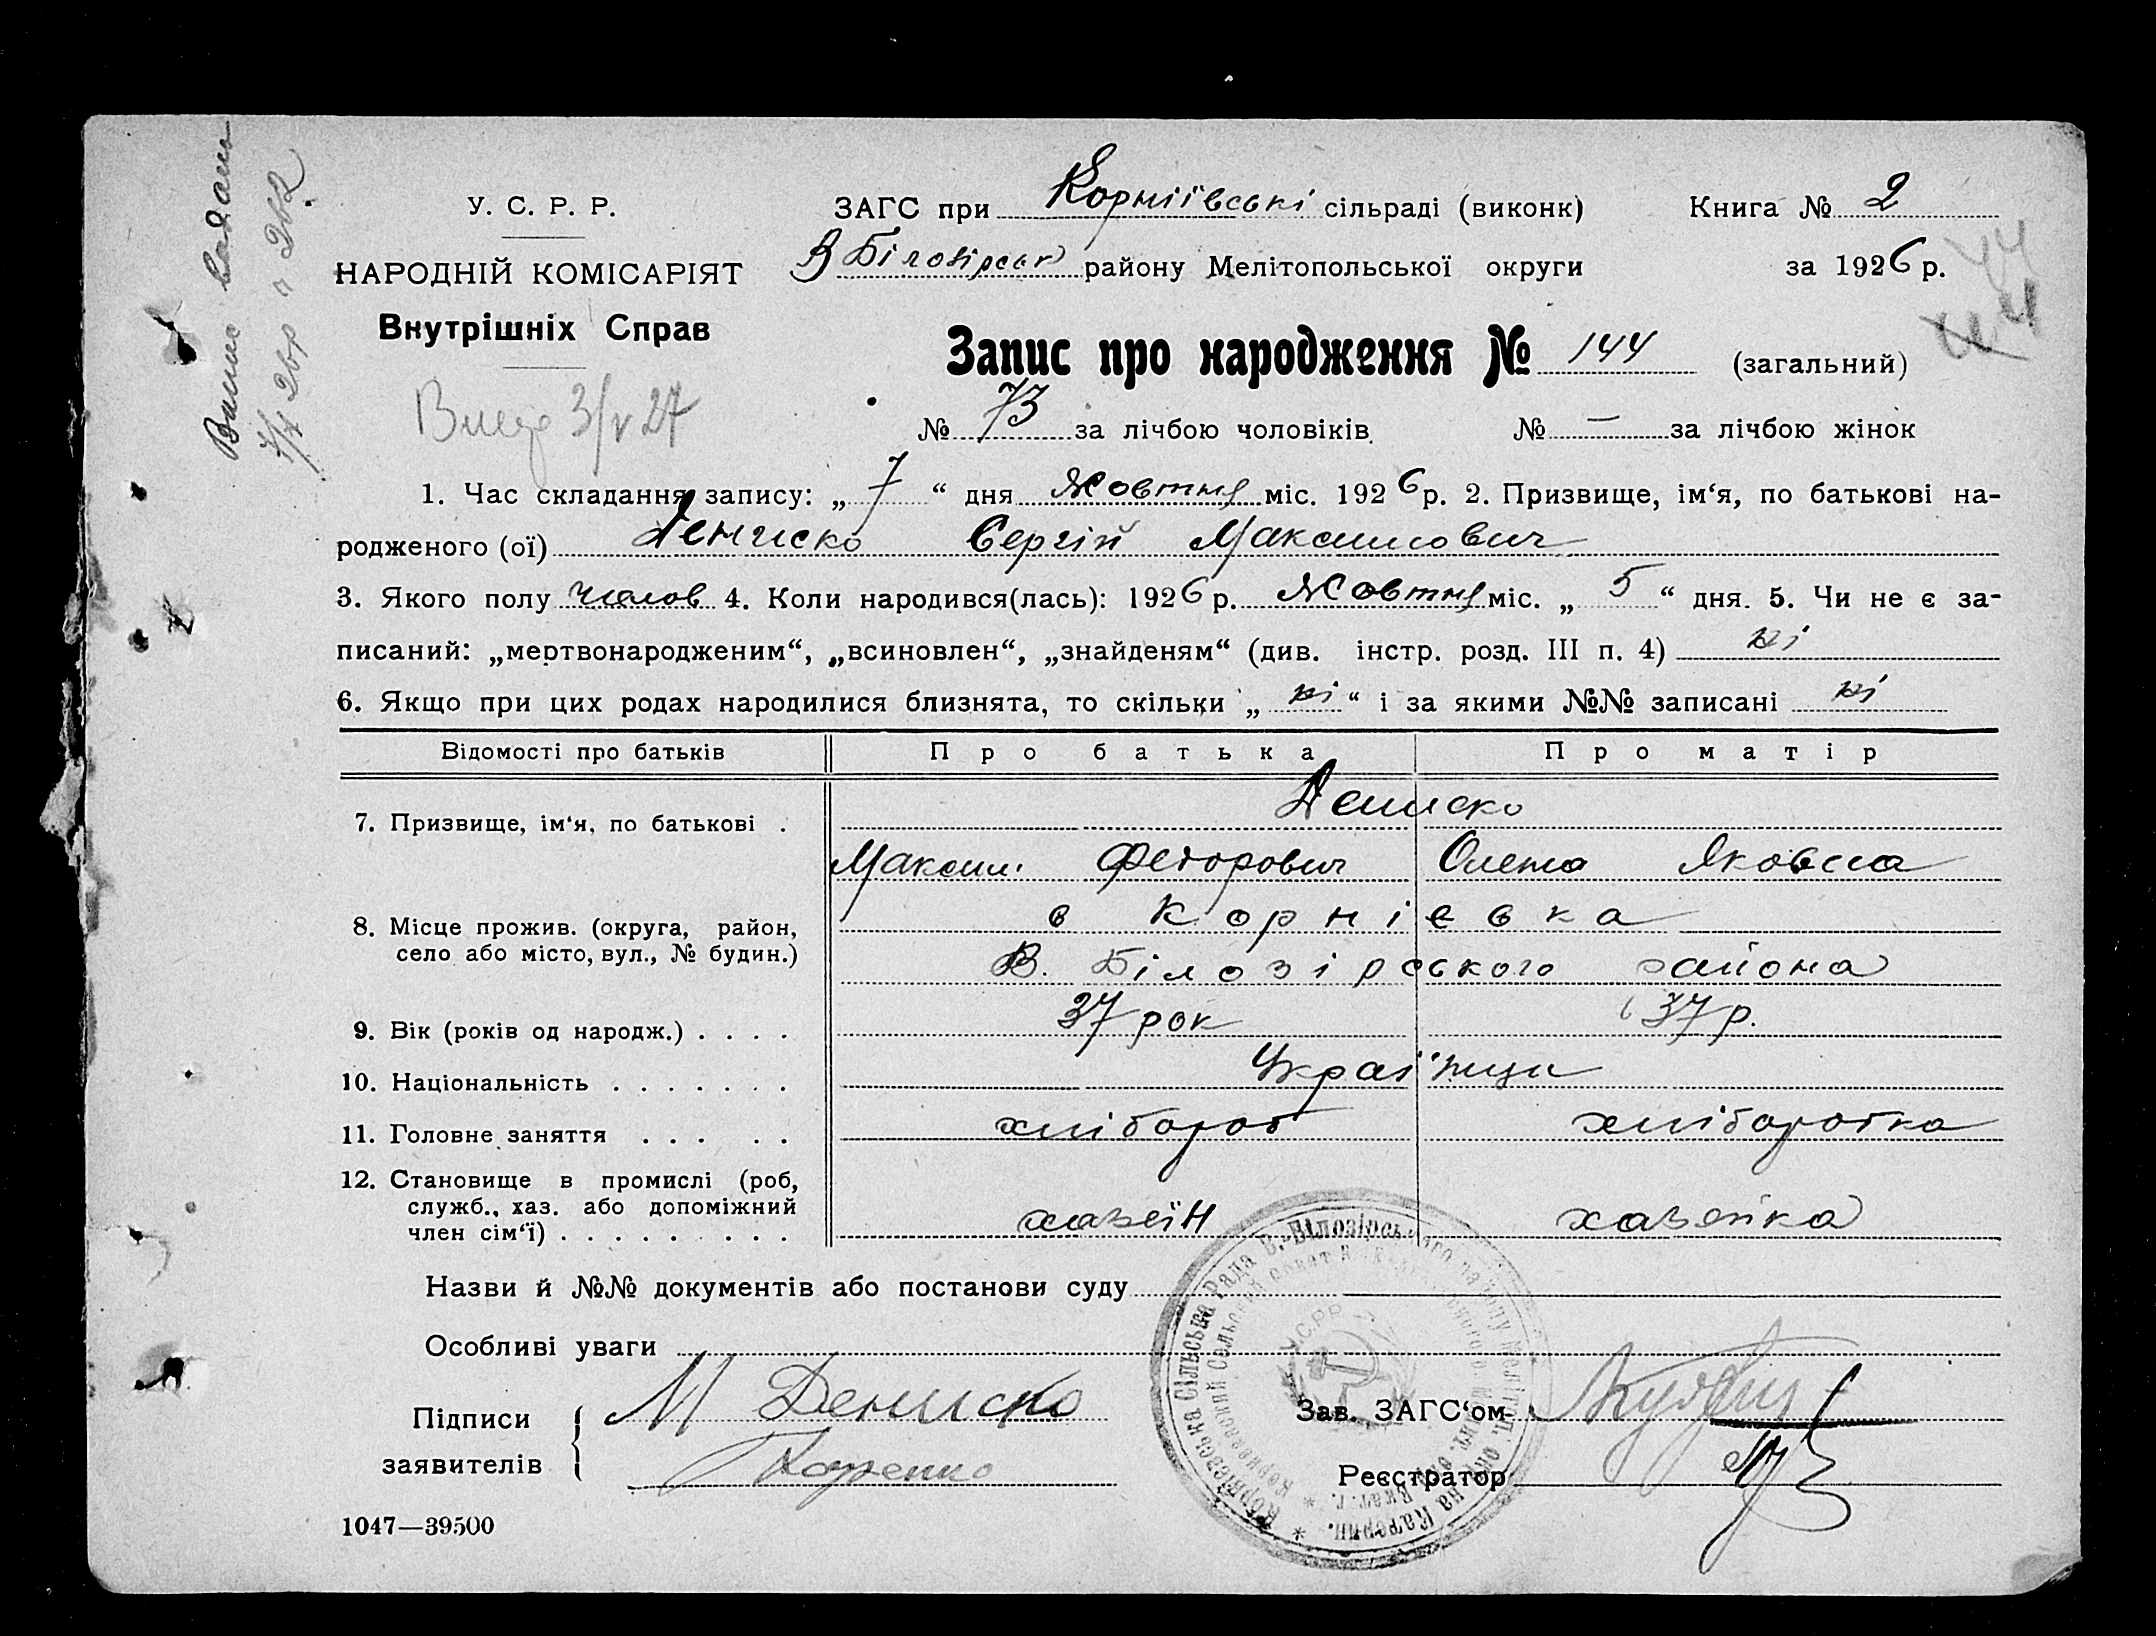 У. С. Р. Р.
НАРОДНІЙ КОМІСАРІЯТ
Внутрішніх Справ
ЗАГС при Корніївські сільраді (виконк)
В Білозірськ району Мелітопольської округи
Книга № 2
за 1926 р.
44
44
Запис про народження № 144 (загальний)
№ 73 за лічбою чоловіків № — за лічбою жінок
1. Час складання запису: „ 7 “ дня Жовтня міс. 1926 р. 2. Призвище, ім‘я, по батькові на-
родженого (ої) Дениско Сергій Максимович
3. Якого полу чолов 4. Коли народився(лась): 1926 р. Жовтня міс. „ 5 “ дня. 5. Чи не є за-
писаний: „мертвонародженим“, „всиновлен“, „знайденям“ (див. інстр. розд. III п. 4) ні
6. Якщо при цих родах народилися близнята, то скільки „ ні “ і за якими №№ записані ні
Відомості про батьків Про батька Про матір
7. Призвище, ім‘я, по батькові . Дениско
Максим Федорович Олена Яковна
8. Місце прожив. (округа, район, село або місто, вул., № будин.) в Корнієвка
В. Білозірського района
9. Вік (років од народж.) . . . . 37 рок 37 р.
10. Національність . . . . . . . Українци
11. Головне заняття . . . . . хлібороб хліборобка
12. Становище в промислі (роб, служб., хаз. або допоміжний член сім‘ї) . . . . . . . . . хазяїн хазяйка
Назви й №№ документів або постанови суду
Особливі уваги
Підписи заявителів М Дениско
Зав. ЗАГС‘ом
Реєстратор
1047—39500